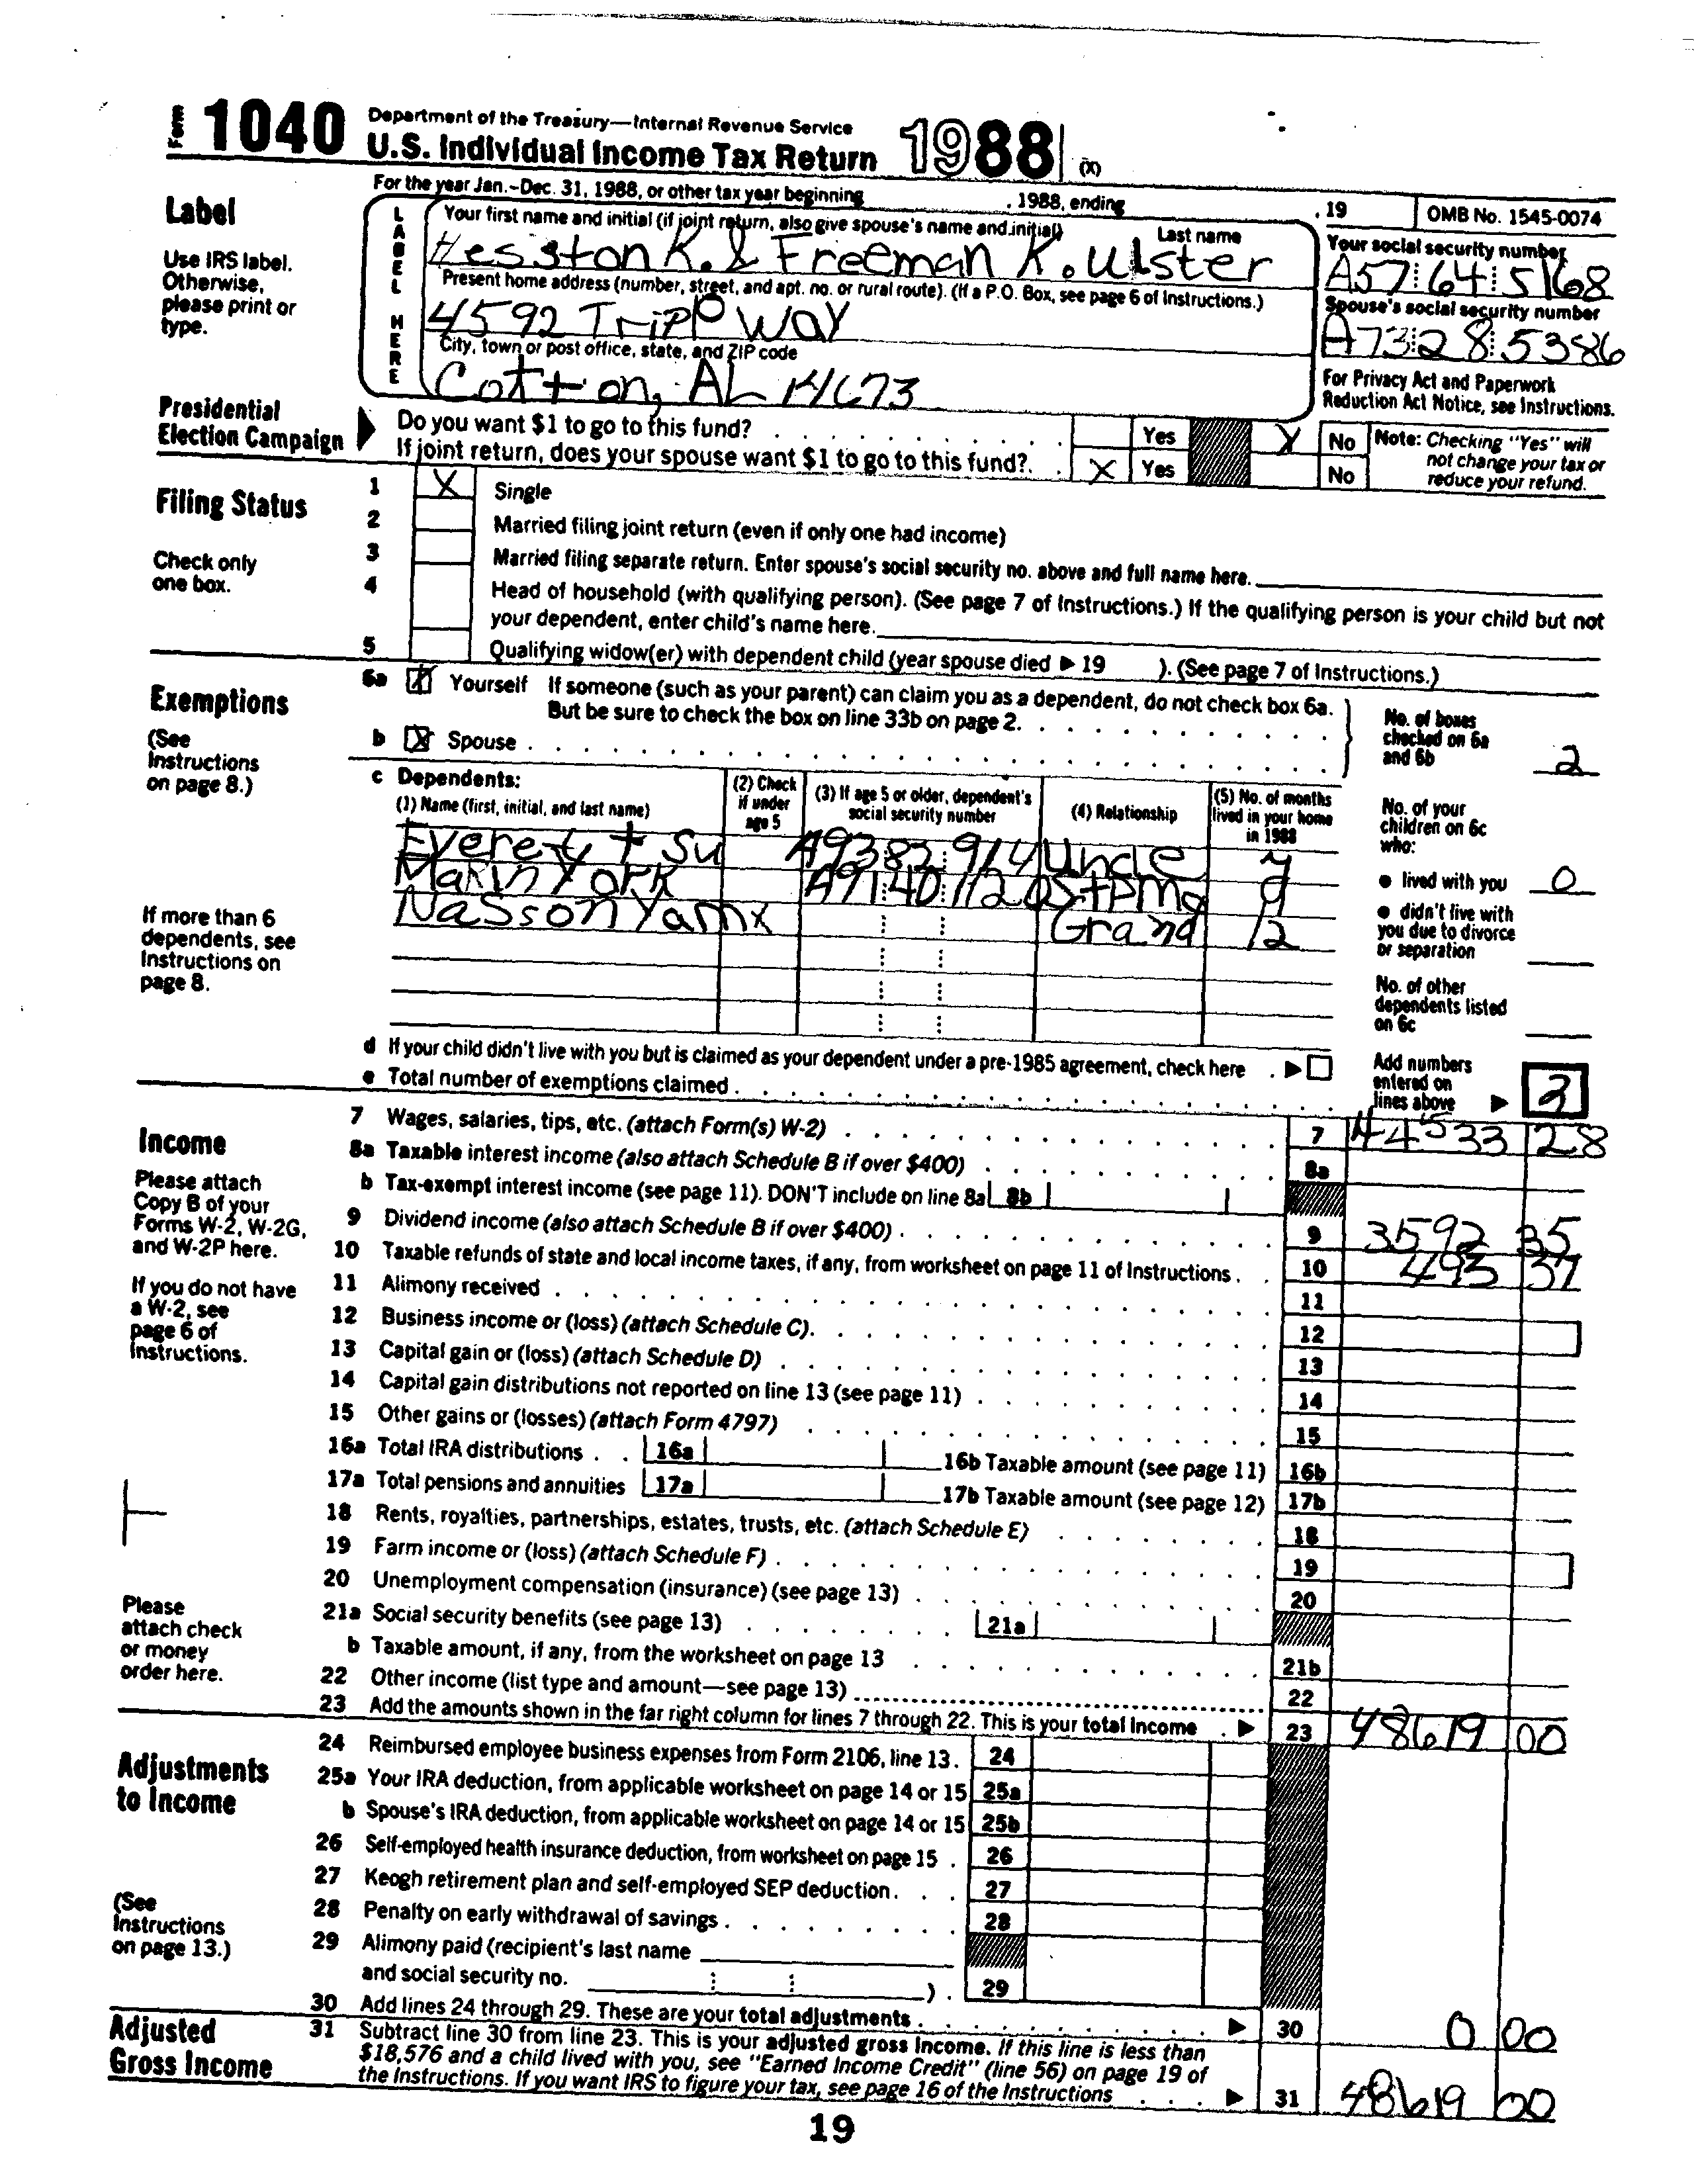 Form 1040 Department of the Treasury—Internal Revenue Service
U.S. Individual Income Tax Return 1988 (X)
For the year Jan.-Dec. 31, 1988, or other tax year beginning , 1988, ending , 19 OMB No. 1545-0074
Label
Use IRS label.
Otherwise,
please print or
type.
LABEL HERE
Your first name and initial (if joint return, also give spouse's name and initial) Last name
Hesston K. & Freeman K. Ulster
Your social security number
A57 64 5168
Present home address (number, street, and apt. no. or rural route). (If a P.O. Box, see page 6 of Instructions.)
4592 Tripp Way
Spouse's social security number
A73 28 5386
City, town or post office, state, and ZIP code
Cotton, AL 14673
For Privacy Act and Paperwork
Reduction Act Notice, see Instructions.
Presidential
Election Campaign
Do you want $1 to go to this fund? Yes X No
If joint return, does your spouse want $1 to go to this fund? X Yes No
Note: Checking "Yes" will
not change your tax or
reduce your refund.
Filing Status
Check only
one box.
1 X Single
2 Married filing joint return (even if only one had income)
3 Married filing separate return. Enter spouse's social security no. above and full name here.
4 Head of household (with qualifying person). (See page 7 of Instructions.) If the qualifying person is your child but not
your dependent, enter child's name here.
5 Qualifying widow(er) with dependent child (year spouse died ▶ 19 ). (See page 7 of Instructions.)
Exemptions
(See
Instructions
on page 8.)
If more than 6
dependents, see
Instructions on
page 8.
6a X Yourself If someone (such as your parent) can claim you as a dependent, do not check box 6a.
But be sure to check the box on line 33b on page 2.
b X Spouse
No. of boxes
checked on 6a
and 6b 2
c Dependents:
(1) Name (first, initial, and last name)
(2) Check
if under
age 5
(3) If age 5 or older, dependent's
social security number
(4) Relationship
(5) No. of months
lived in your home
in 1988
Everett Su A93 82 914 Uncle
Makin York A91 40 1120 StpMo
Nasson Yamx Grand 12
No. of your
children on 6c
who:
● lived with you 0
● didn't live with
you due to divorce
or separation
No. of other
dependents listed
on 6c
d If your child didn't live with you but is claimed as your dependent under a pre-1985 agreement, check here ▶
e Total number of exemptions claimed
Add numbers
entered on
lines above ▶ 2
Income
Please attach
Copy B of your
Forms W-2, W-2G,
and W-2P here.
If you do not have
a W-2, see
page 6 of
Instructions.
Please
attach check
or money
order here.
7 Wages, salaries, tips, etc. (attach Form(s) W-2) 7 44533 28
8a Taxable interest income (also attach Schedule B if over $400) 8a
b Tax-exempt interest income (see page 11). DON'T include on line 8a 8b
9 Dividend income (also attach Schedule B if over $400) 9 3592 35
10 Taxable refunds of state and local income taxes, if any, from worksheet on page 11 of Instructions. 10 493 37
11 Alimony received 11
12 Business income or (loss) (attach Schedule C). 12
13 Capital gain or (loss) (attach Schedule D) 13
14 Capital gain distributions not reported on line 13 (see page 11) 14
15 Other gains or (losses) (attach Form 4797) 15
16a Total IRA distributions 16a 16b Taxable amount (see page 11) 16b
17a Total pensions and annuities 17a 17b Taxable amount (see page 12) 17b
18 Rents, royalties, partnerships, estates, trusts, etc. (attach Schedule E) 18
19 Farm income or (loss) (attach Schedule F) 19
20 Unemployment compensation (insurance) (see page 13) 20
21a Social security benefits (see page 13) 21a
b Taxable amount, if any, from the worksheet on page 13 21b
22 Other income (list type and amount—see page 13) 22
23 Add the amounts shown in the far right column for lines 7 through 22. This is your total income ▶ 23 48619 00
Adjustments
to Income
(See
Instructions
on page 13.)
24 Reimbursed employee business expenses from Form 2106, line 13. 24
25a Your IRA deduction, from applicable worksheet on page 14 or 15 25a
b Spouse's IRA deduction, from applicable worksheet on page 14 or 15 25b
26 Self-employed health insurance deduction, from worksheet on page 15 26
27 Keogh retirement plan and self-employed SEP deduction 27
28 Penalty on early withdrawal of savings 28
29 Alimony paid (recipient's last name
and social security no. ) 29
30 Add lines 24 through 29. These are your total adjustments ▶ 30 0 00
Adjusted
Gross Income
31 Subtract line 30 from line 23. This is your adjusted gross income. If this line is less than
$18,576 and a child lived with you, see "Earned Income Credit" (line 56) on page 19 of
the Instructions. If you want IRS to figure your tax, see page 16 of the Instructions ▶ 31 48619 00
19